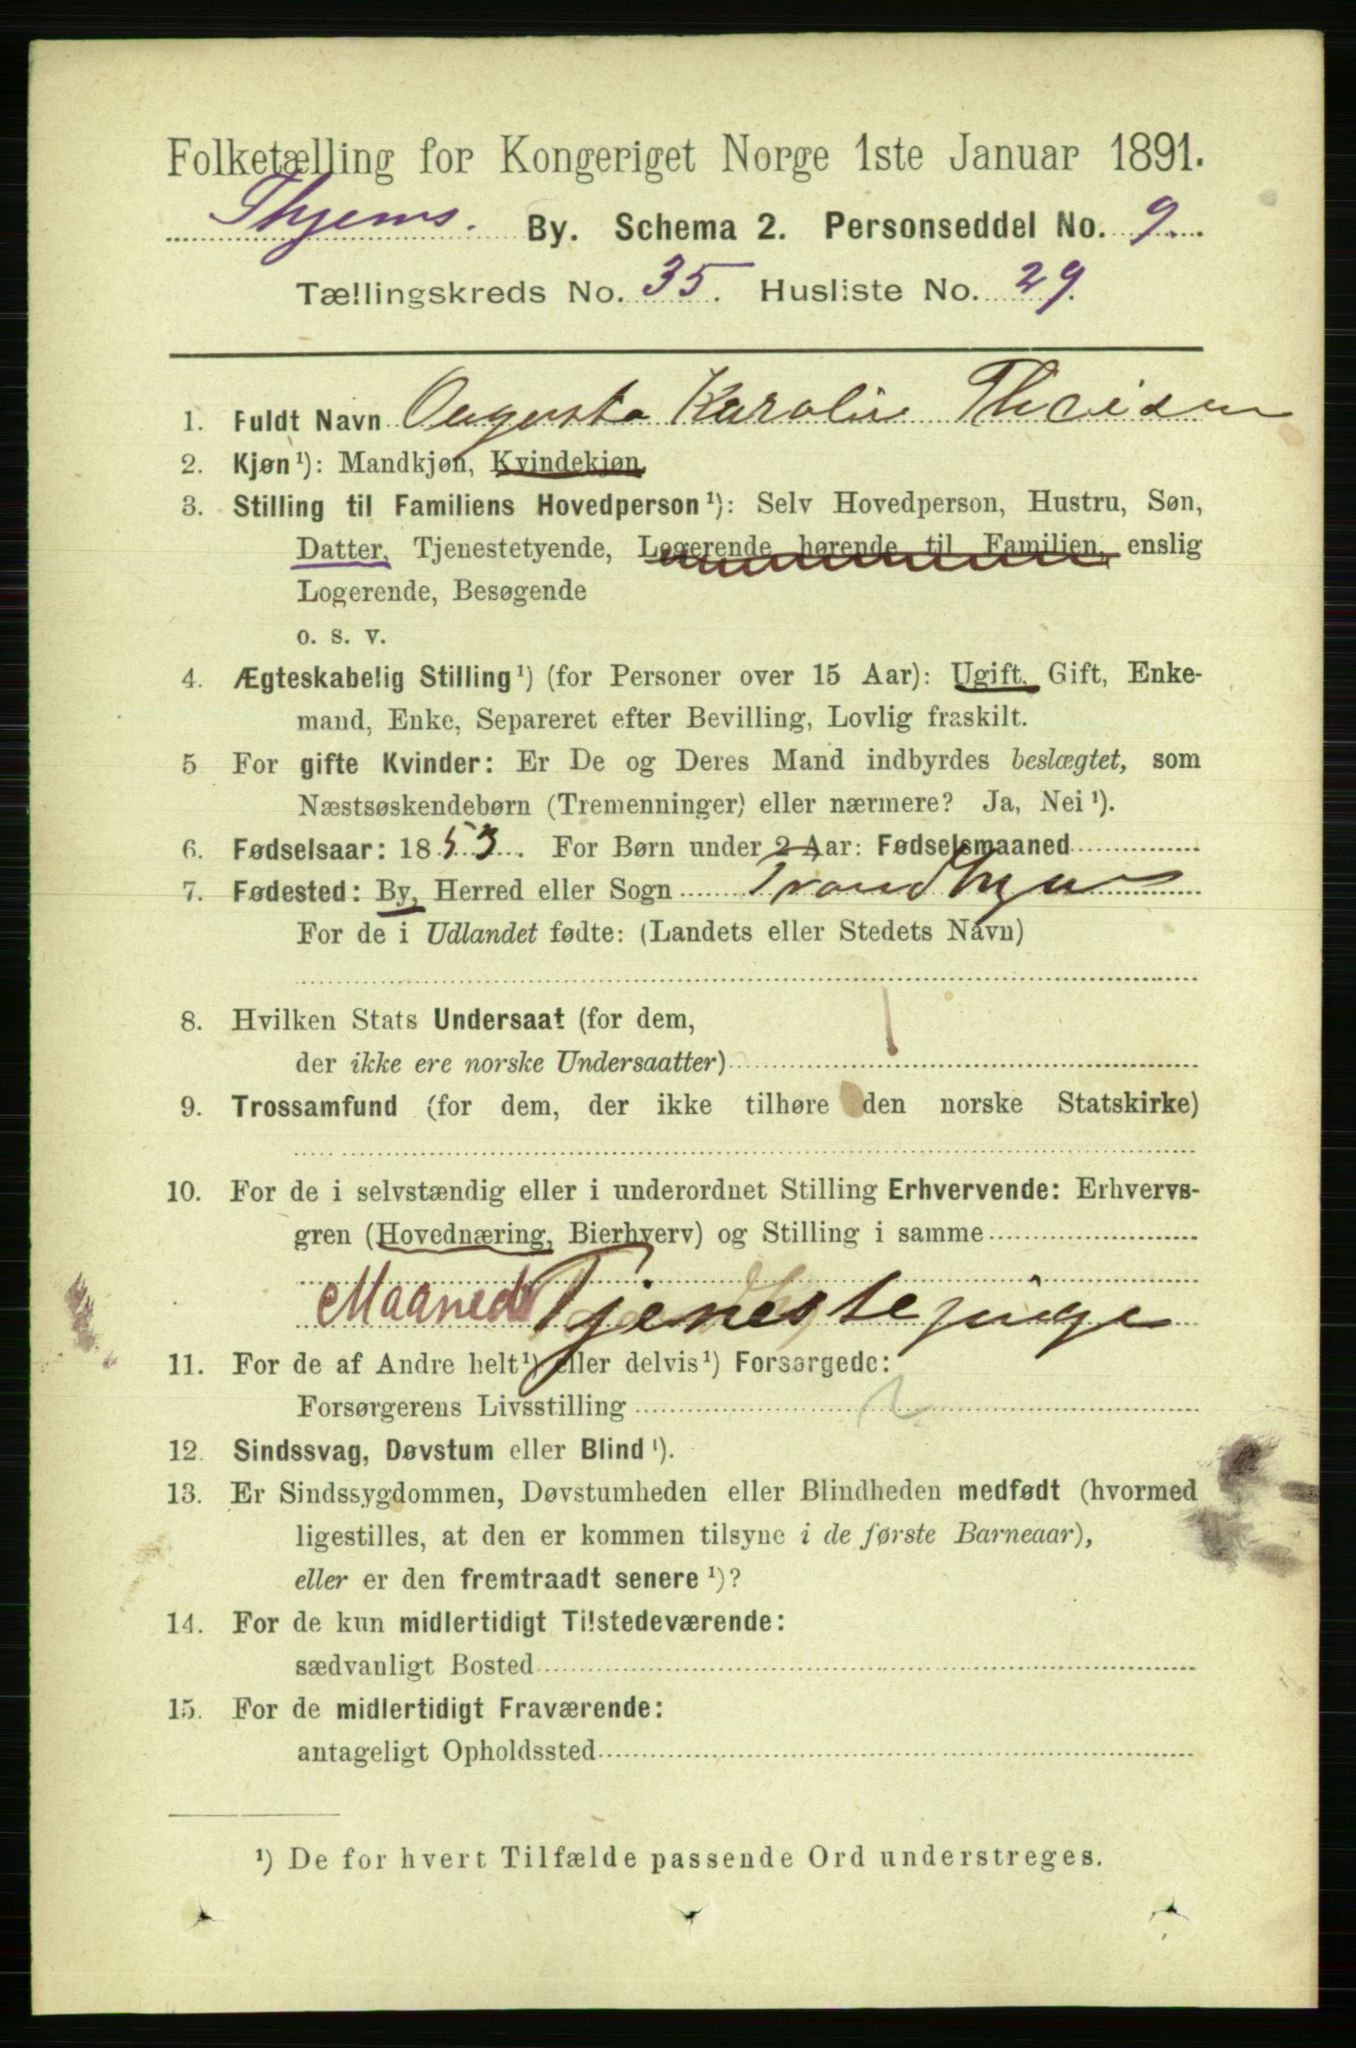 Folketælling for Kongeriget Norge 1ste Januar 1891.
Thjems. By. Schema 2. Personseddel No. 9.
Tællingskreds No. 35. Husliste No. 29.
1. Fuldt Navn Augusta Karolin Theisen
2. Kjøn ¹): Mandkjøn, Kvindekjøn.
3. Stilling til Familiens Hovedperson ¹): Selv Hovedperson, Hustru, Søn,
Datter, Tjenestetyende, Logerende hørende til Familien, enslig
Logerende, Besøgende
o. s. v.
4. Ægteskabelig Stilling ¹) (for Personer over 15 Aar): Ugift, Gift, Enke-
mand, Enke, Separeret efter Bevilling, Lovlig fraskilt.
5 For gifte Kvinder: Er De og Deres Mand indbyrdes beslægtet, som
Næstsøskendebørn (Tremenninger) eller nærmere? Ja, Nei ¹).
6. Fødselsaar: 1853. For Børn under 2 Aar: Fødselsmaaned
7. Fødested: By, Herred eller Sogn Trondhjem
For de i Udlandet fødte: (Landets eller Stedets Navn)
8. Hvilken Stats Undersaat (for dem,
der ikke ere norske Undersaatter)
9. Trossamfund (for dem, der ikke tilhøre den norske Statskirke)
10. For de i selvstændig eller i underordnet Stilling Erhvervende: Erhvervs-
gren (Hovednæring, Bierhverv) og Stilling i samme
Maaneds Tjenestepige
11. For de af Andre helt ¹) eller delvis ¹) Forsørgede:
Forsørgerens Livsstilling
12. Sindssvag, Døvstum eller Blind ¹).
13. Er Sindssygdommen, Døvstumheden eller Blindheden medfødt (hvormed
ligestilles, at den er kommen tilsyne i de første Barneaar),
eller er den fremtraadt senere ¹)?
14. For de kun midlertidigt Tilstedeværende:
sædvanligt Bosted
15. For de midlertidigt Fraværende:
antageligt Opholdssted
¹) De for hvert Tilfælde passende Ord understreges.